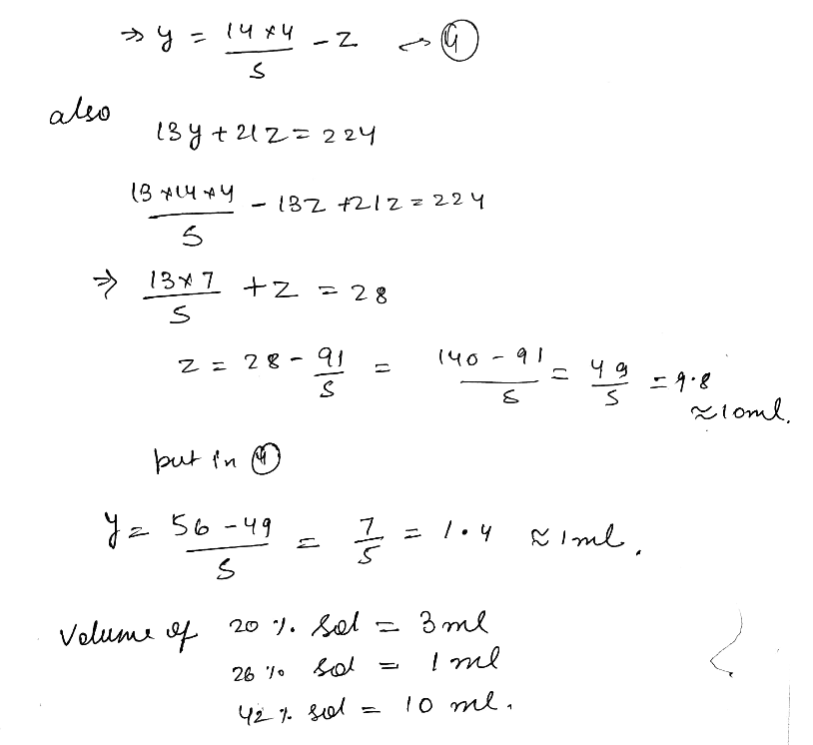 ⇒ y = 14×4/5 - z → ④
also
13y + 21z = 224
13×14×4/5 - 13z + 21z = 224
⇒ 13×7/5 + z = 28
z = 28 - 91/5 = 140 - 91/5 = 49/5 = 9.8
≈ 10ml.
put in ④
y = 56 - 49/5 = 7/5 = 1.4 ≈ 1ml.
Volume of 20 %. Sol = 3 ml
26 % Sol = 1 ml
42 %. Sol = 10 ml.